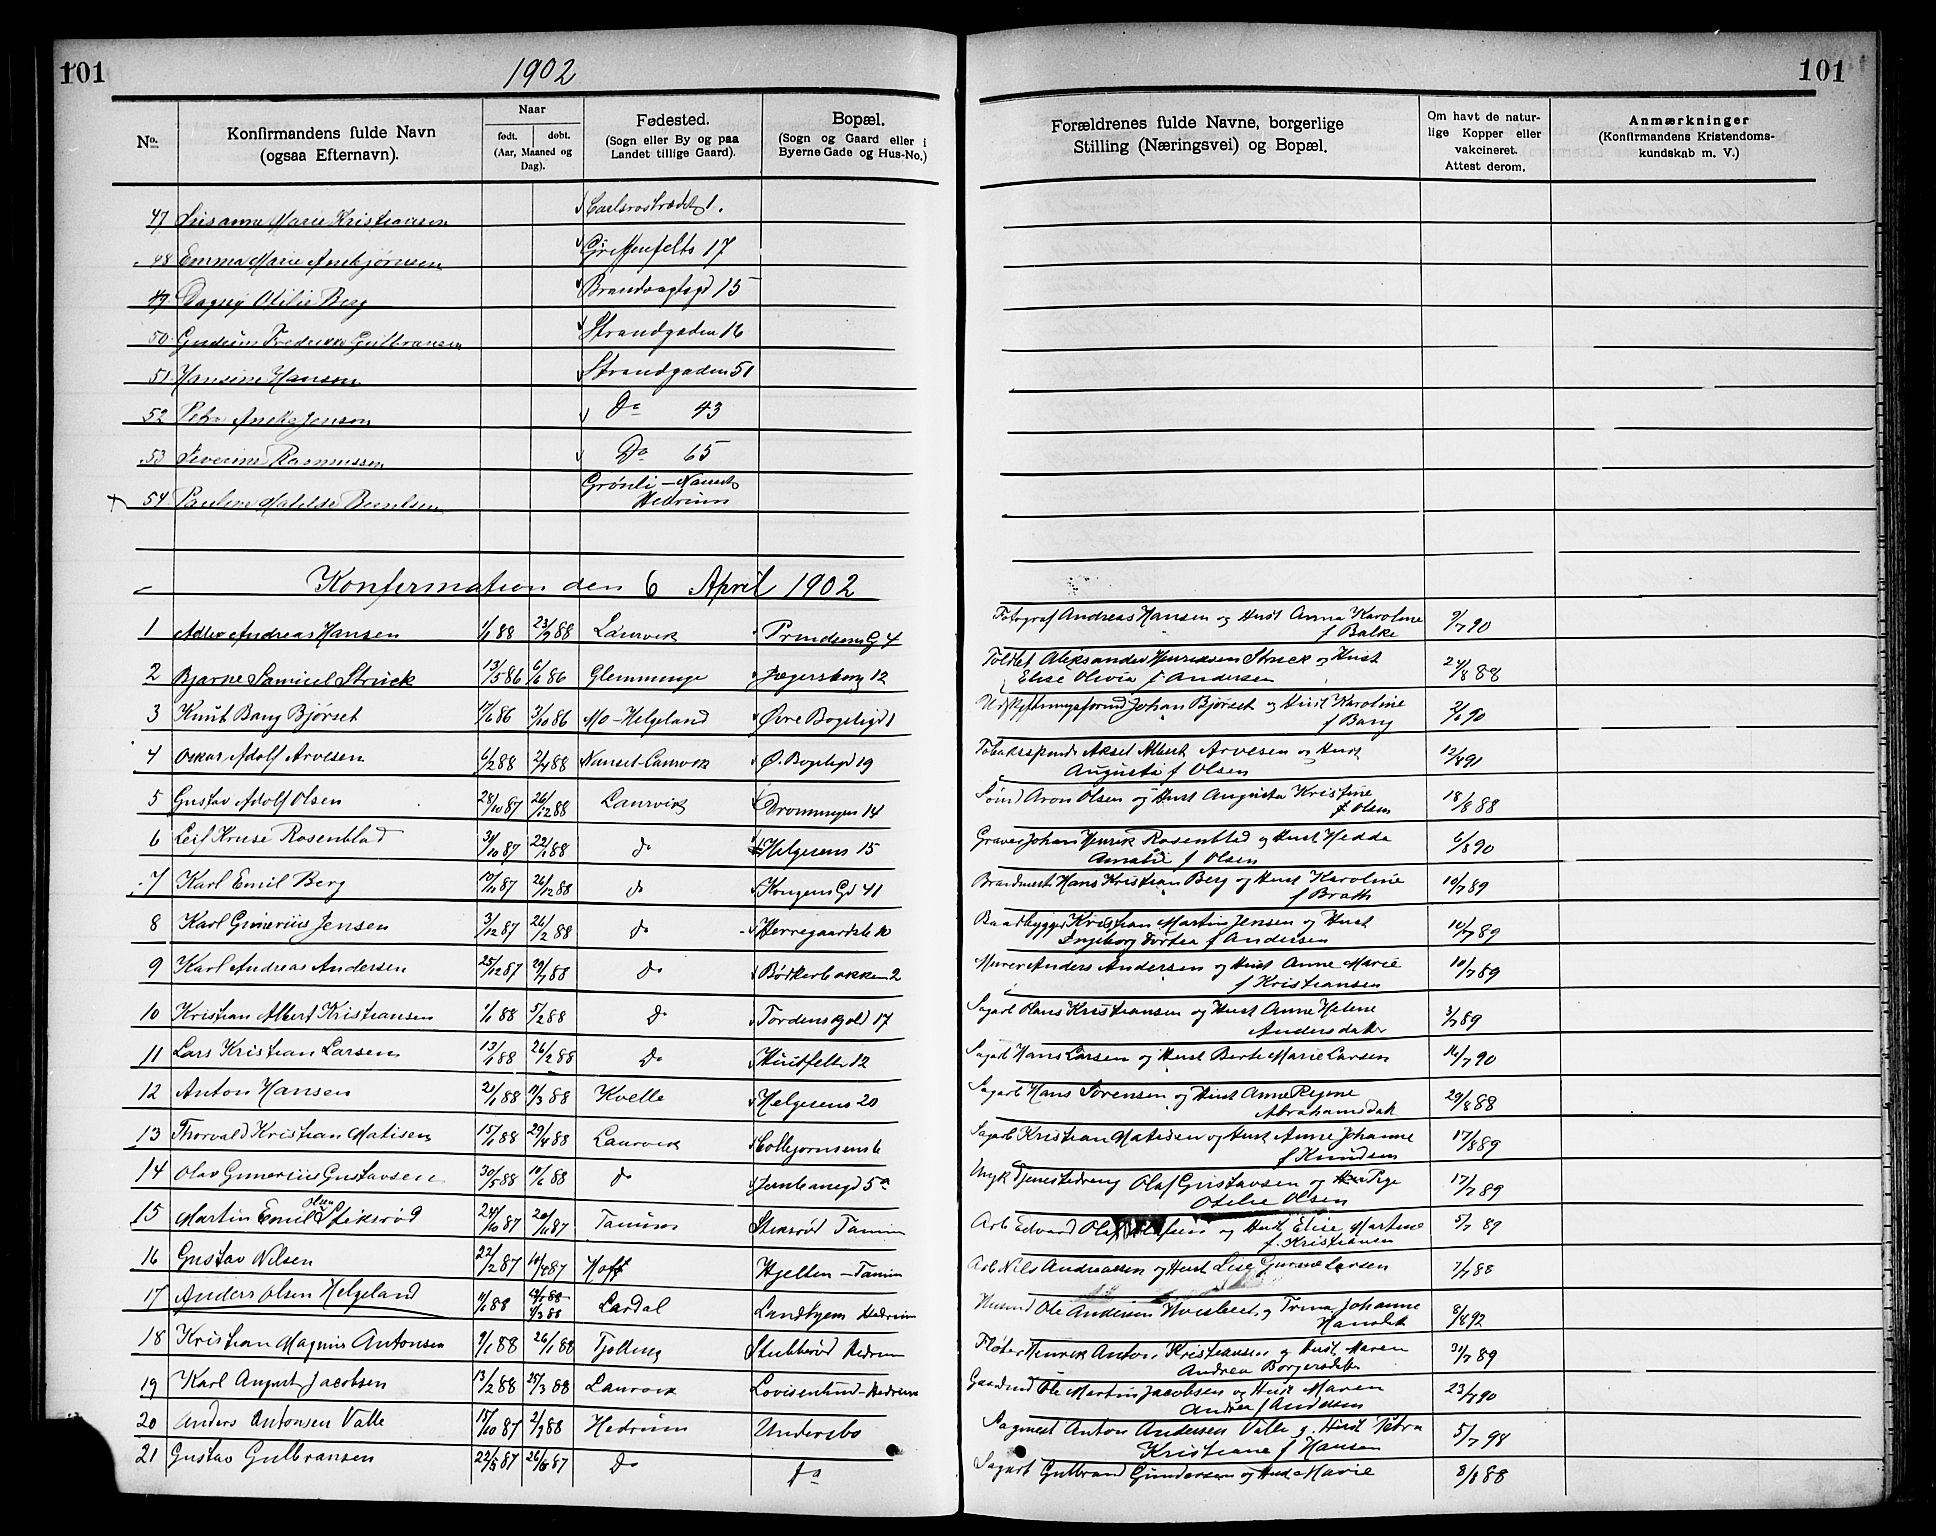 101
1902
No.
Konfirmandens fulde Navn
(ogsaa Efternavn).
Naar
født.
døbt.
(Aar, Maaned og
Dag).
Fødested.
(Sogn eller By og paa
Landet tillige Gaard).
Bopæl.
(Sogn og Gaard eller i
Byerne Gade og Hus-No.)
47 Susanna Marie Kristiansen Carlsrostrædet 1.
48 Emma Marie Arnbjørnsen Griffenfelts 17
49 Dagny Otilie Berg Brandvagtsgd 15
50 Gudrun Fredrikke Gulbransen Strandgaden 16
51 Hansine Hansen Strandgaden 51
52 Petra Jenson Do 43
53 Severine Rasmussen Do 65
54 Pauline Matilde Berntsen Grönli - Nanset
Hedrum
Konfermation den 6 April 1902
1 Adler Andreas Hansen 1/1 88 23/9 88 Laurvik Prindsens G 4
2 Bjarne Samuel Struck 13/5 86 6/6 86 Glemminge Jegersborg 12
3 Knut Bang Bjørset 17/6 86 3/10 86 Mo - Helgeland Øvre Bøgeligd 1
4 Oskar Adolf Arvesen 6/2 88 2/4 88 Nanset-Laurvik Ø. Bøgeligd 19
5 Gustav Adolf Olsen 28/10 87 26/12 88 Laurvik Dronningens 14
6 Leif Kruse Rosenblad 31/10 87 22/1 88 do Helgesens 15
7 Karl Emil Berg 10/11 87 26/12 88 do Kongens Gd 41
8 Karl Gunerius Jensen 3/12 87 26/2 88 do Herregaardsb 10
9 Karl Andreas Andersen 25/12 87 29/7 88 do Bødkerbakken 2
10 Kristian Albert Kristiansen 1/1 88 5/2 88 do Tordenskjold 17
11 Lars Kristian Larsen 13/1 88 26/2 88 Do Huitfelts 12
12 Anton Hansen 21/1 88 11/3 88 Kvelle Helgesens 20
13 Thorvald Kristian Matisen 15/1 88 29/4 88 Laurvik Collbjørnsens 6
14 Olav Gunerius Gustavsen 30/5 88 10/6 88 do Jernbanegd 5a
olsen
15 Martin Emil Stiksrød 24/10 87 20/11 87 Tanum Stiksrød Tanum
16 Gustav Nilsen 22/2 87 10/4 87 Hoff Hjelten - Tanum
17 Anders Olsen Helgeland 11/1 88 11/3 88 Lardal Landbyen Hedrum
18 Kristian Magnus Antonsen 9/1 88 26/1 88 Tjølling Stubberød Hedrum
19 Karl August Jacobsen 13/2 88 25/3 88 Laurvik Lovisenlund - Hedrum
20 Anders Antonsen Valle 15/10 87 2/7 88 Hedrum Undersbo
21 Gustav Gulbransen 22/5 87 26/6 87 Do Do
101
Forældrenes fulde Navne, borgerlige
Stilling (Næringsvei) og Bopæl.
Om havt de natur-
lige Kopper eller
vakcineret.
Attest derom.
Anmærkninger
(Konfirmandens Kristendoms-
kundskab m. V.)
Fotograf Andreas Hansen og Hust Anna Karoline 9/7 90
f Balke
Toldbt Aleksander Henriksen Struck og Hust 24/8 88
Elise Olivia f Andersen
Johan Bjørset og Hust Karoline 3/6 90
f Bang
Tobaksspinder Aksel Albert Arvesen og Hust 12/8 91
Augusta f Olsen
Sømd Aron Olsen og Hust Augusta Kristine 18/8 88
f Olsen
Graver Johan Henrik Rosenblad og Hust Hedda 6/8 90
Amalie f Olsen
Brandmest Hans Kristian Berg og Hust Karoline 10/7 89
f Brath
Baadbygger Kristian Martin Jensen og Hust 10/7 89
Ingeborg Dortea f Andersen
Murer Anders Andersen og Hust Anne Marie 10/7 89
f Kristiansen
Sagarb Olaus Kristiansen og Hust Anne Helene 3/7 89
Andersdatter
Sagarb Hans Larsen og Hust Berte Marie Larsen 16/7 90
Sagarb Hans Sorensen og Hust Anne Regine 29/8 88
Abrahamsdat
Sagarb Kristian Matisen og Hust Anne Johanne 17/8 89
f Knudsen
Ungk Tjenestedreng Olaf Gustavsen og Pige 17/7 89
Odelie Olsen
Arb Edvard Olaf Olafsen og Hust Elise Martine 5/7 89
f. Kristiansen
Arb Nils Andreassen og Hust Lise Gurine Larsen 7/7 88
Husmd Ole Andersen og Trina Johanne 8/8 92
Hansdat
Fløter Henrik Anton Kristiansen og Hust Maren 31/7 89
Andrea Borgersdatter
Gaardmd Ole Martin Jacobsen og Hust Maren 23/7 90
Andrea f Andersen
Sagmest Anton Andersen Valle og Hust Petra 5/7 98
Kristiane f Hansen
Sagarb Gulbrand Gundersen og Hust Marie 8/8 88